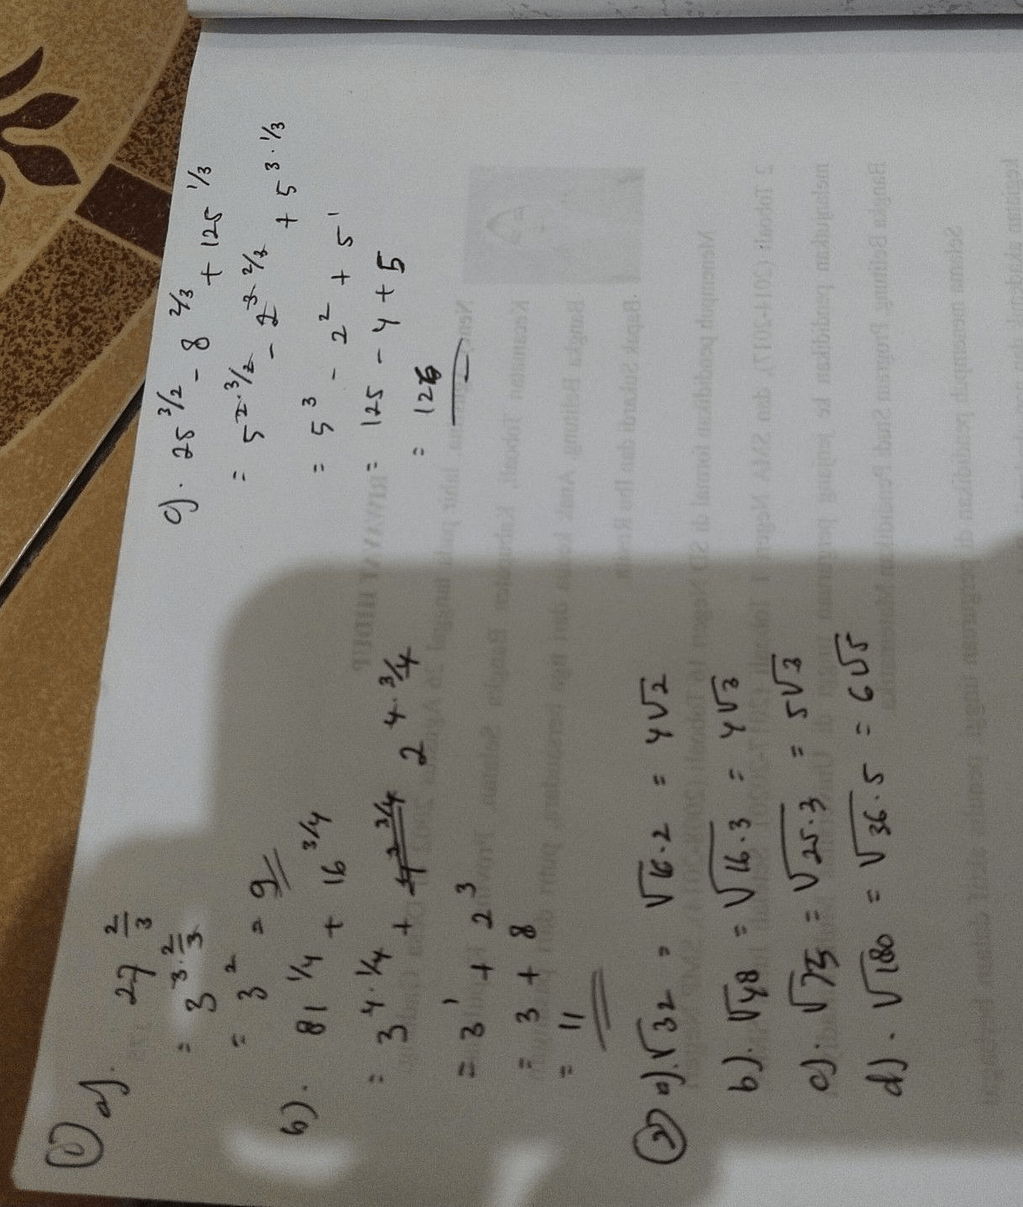 ① a). 27^(2/3)
= 3^(3·2/3)
= 3^2 = 9
b). 81^(1/4) + 16^(3/4)
= 3^(4·1/4) + 2^(4·3/4)
= 3^1 + 2^3
= 3 + 8
= 11
c). 25^(3/2) - 8^(2/3) + 125^(1/3)
= 5^(2·3/2) - 2^(3·2/3) + 5^(3·1/3)
= 5^3 - 2^2 + 5^1
= 125 - 4 + 5
= 126
② a). √32 = √16·2 = 4√2
b). √48 = √16·3 = 4√3
c). √75 = √25·3 = 5√3
d). √180 = √36·5 = 6√5